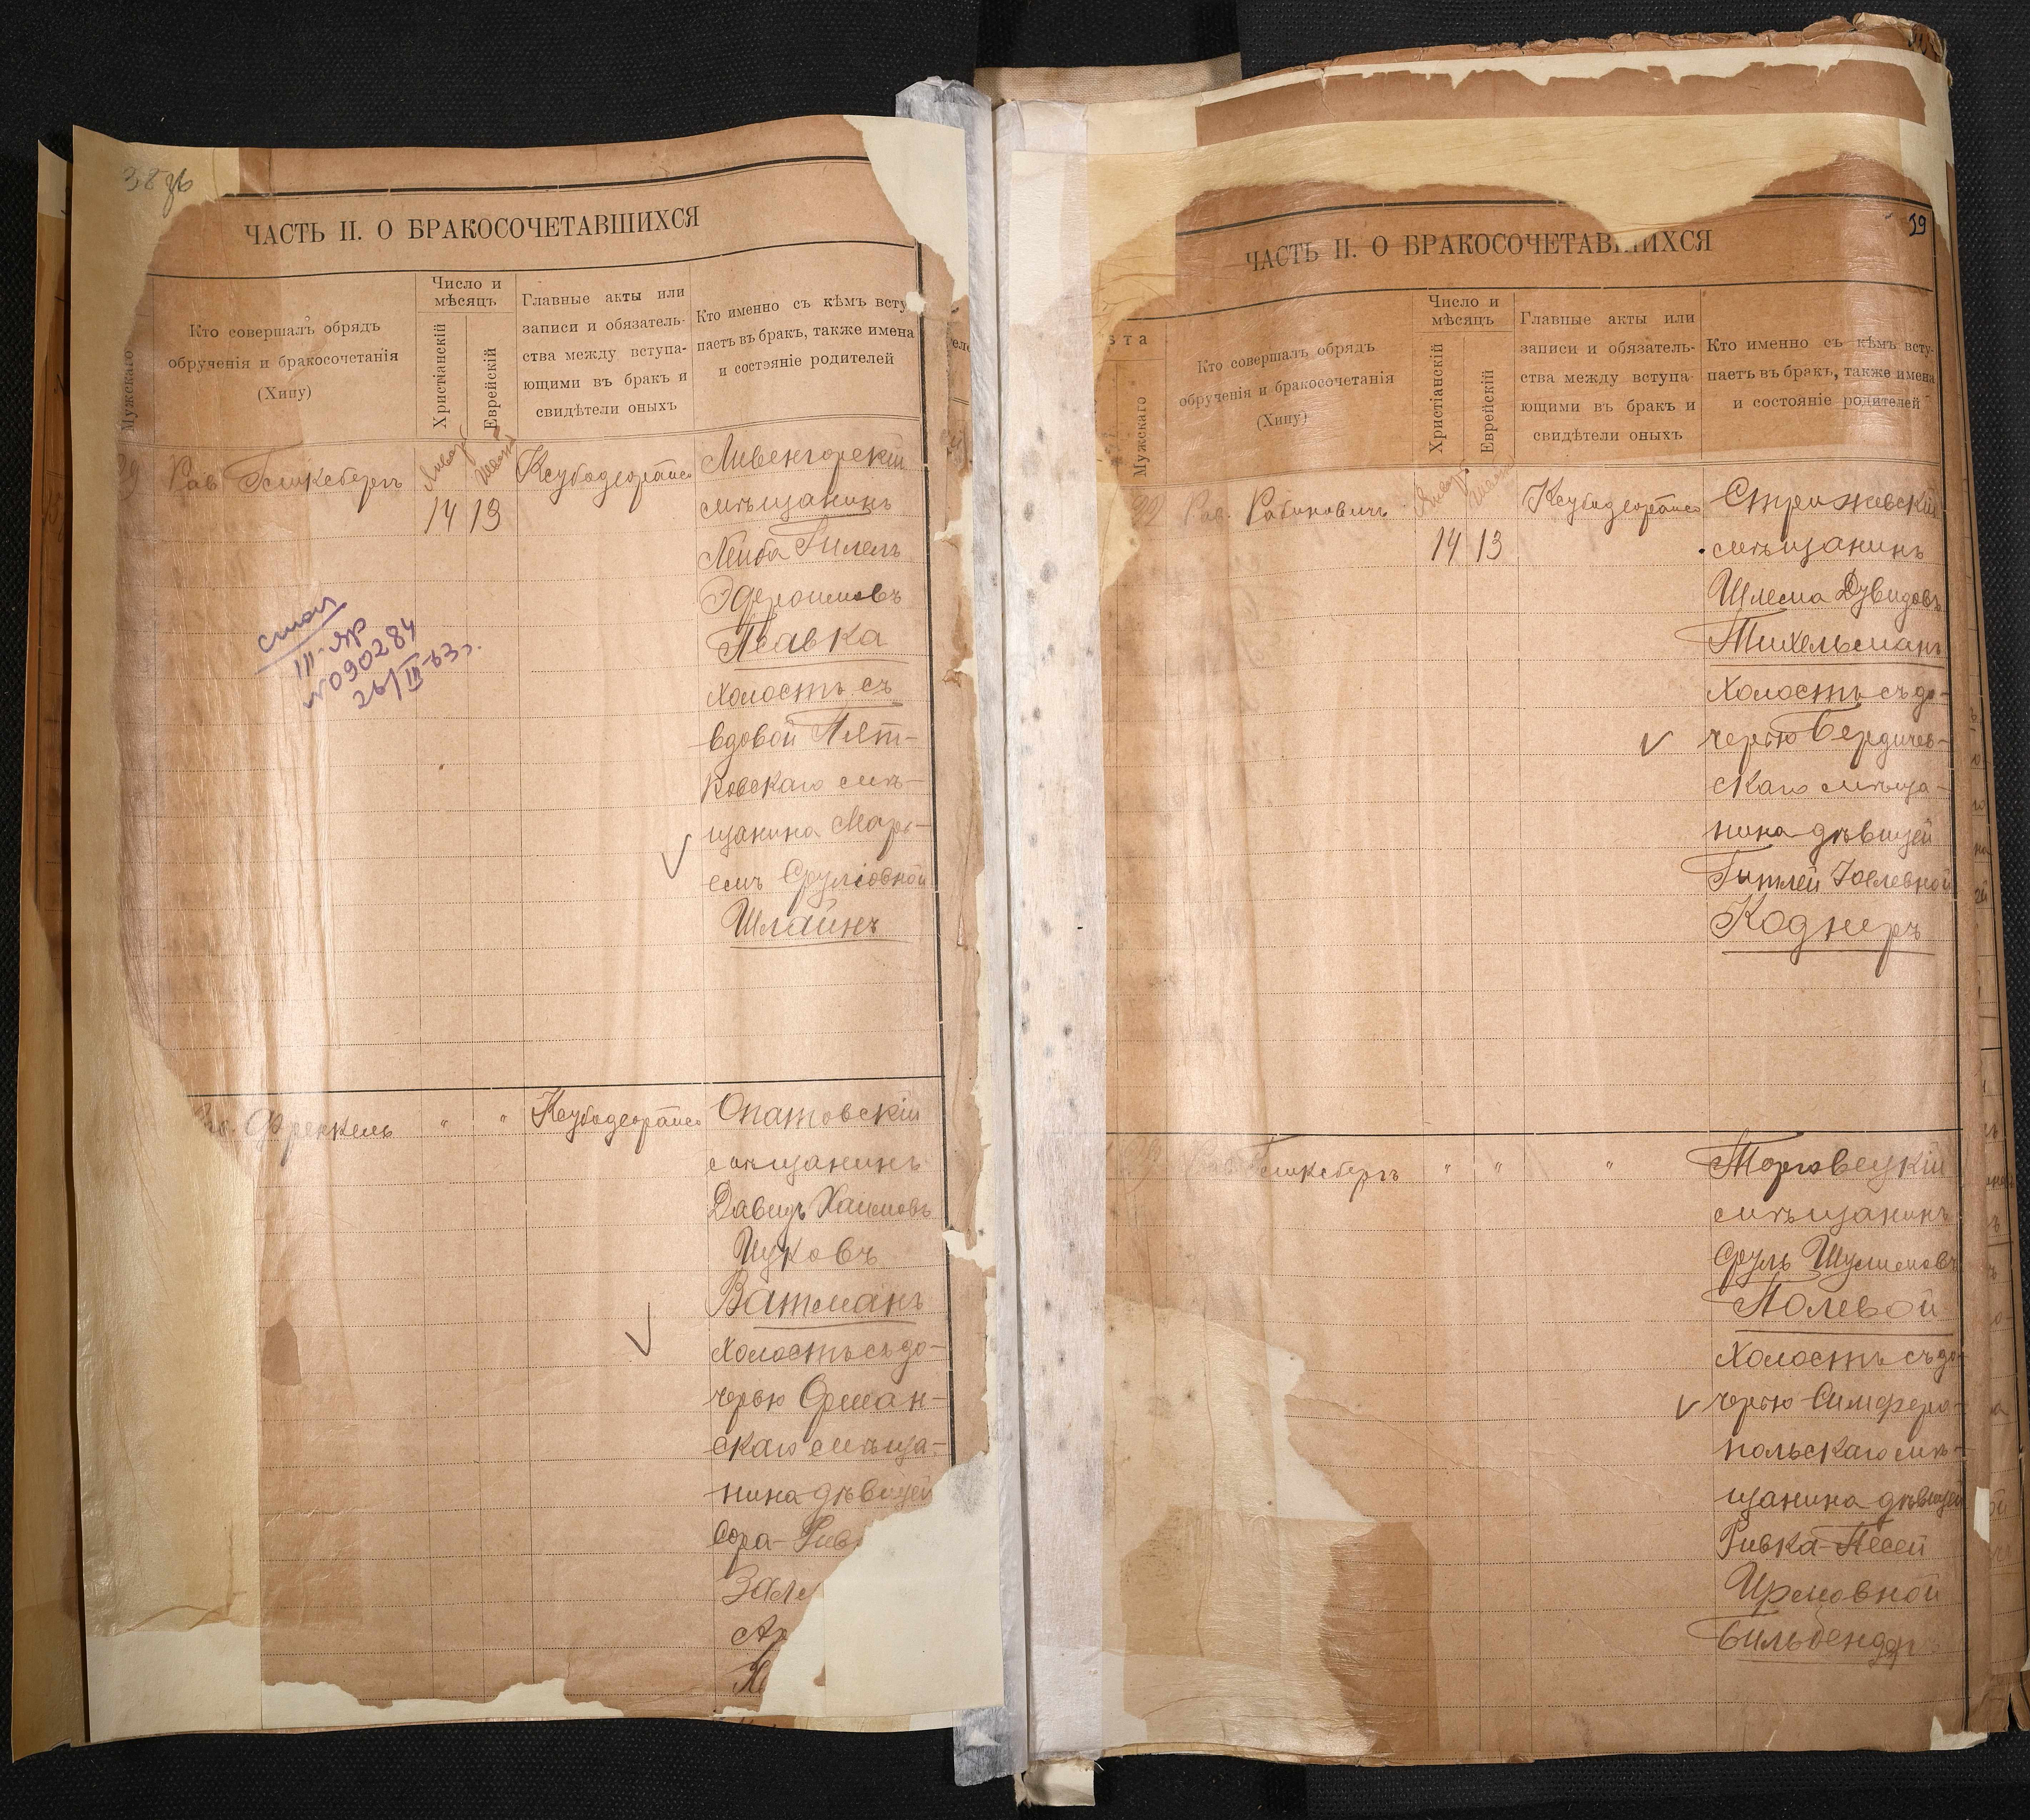 ЧАСТЬ II. О БРАКОСОЧЕТАВШИХСЯ
Мужскаго
Кто совершалъ обрядъ
обрученія и бракосочетанія
(Хипу)
Число и
мѣсяцъ
Христіанскій
Еврейскій
Главные акты или
записи и обязатель-
ства между вступа-
ющими въ бракъ и
свидѣтели оныхъ
Кто именно съ кѣмъ всту
паетъ въ бракъ, также имена
и состояніе родителей
Рав. Гликсбергъ
14 13
Ливенгорскій
мѣщанинъ
Лейба Гилелъ
Эфроимовъ
Псавка
холостъ съ
вдовой Пят-
ковскаго мѣ-
щанина Марь-
емъ Сруліовной
Шлаинъ
стол
III-ЯР
№090284
26/III-63г.
Френкель " "
Опатовскій
мѣщанинъ
Давидъ Хаимовъ
Ицковъ
Ватманъ
холостъ съ до-
черью Орман-
скаго мѣща-
нина дѣвицей
Сора-Рив
Зел
Ар
ЧАСТЬ II. О БРАКОСОЧЕТАВШИХСЯ
ста
Мужскаго
Кто совершалъ обрядъ
обрученія и бракосочетанія
(Хипу)
Число и
мѣсяцъ
Христіанскій
Еврейскій
Главные акты или
записи и обязатель-
ства между вступа-
ющими въ бракъ и
свидѣтели оныхъ
Кто именно съ кѣмъ всту-
паетъ въ бракъ, также имена
и состояніе родителей
Рав. Рабиновичъ
14 13
Стрижевскій
мѣщанинъ
Шлема Дувидовъ
Тихельманъ
холостъ съ до-
черью Бердичев-
скаго мѣща-
нина дѣвицей
Гитлей Іоелевной
Коднеръ
Рав. Гликсбергъ " " "
Торговецкій
мѣщанинъ
Сруль Шулимовъ
Полевой
холостъ съ до-
черью Симферо-
польскаго мѣ-
щанина дѣвицей
Ривка-Песей
Ирмовной
Бильбендеръ